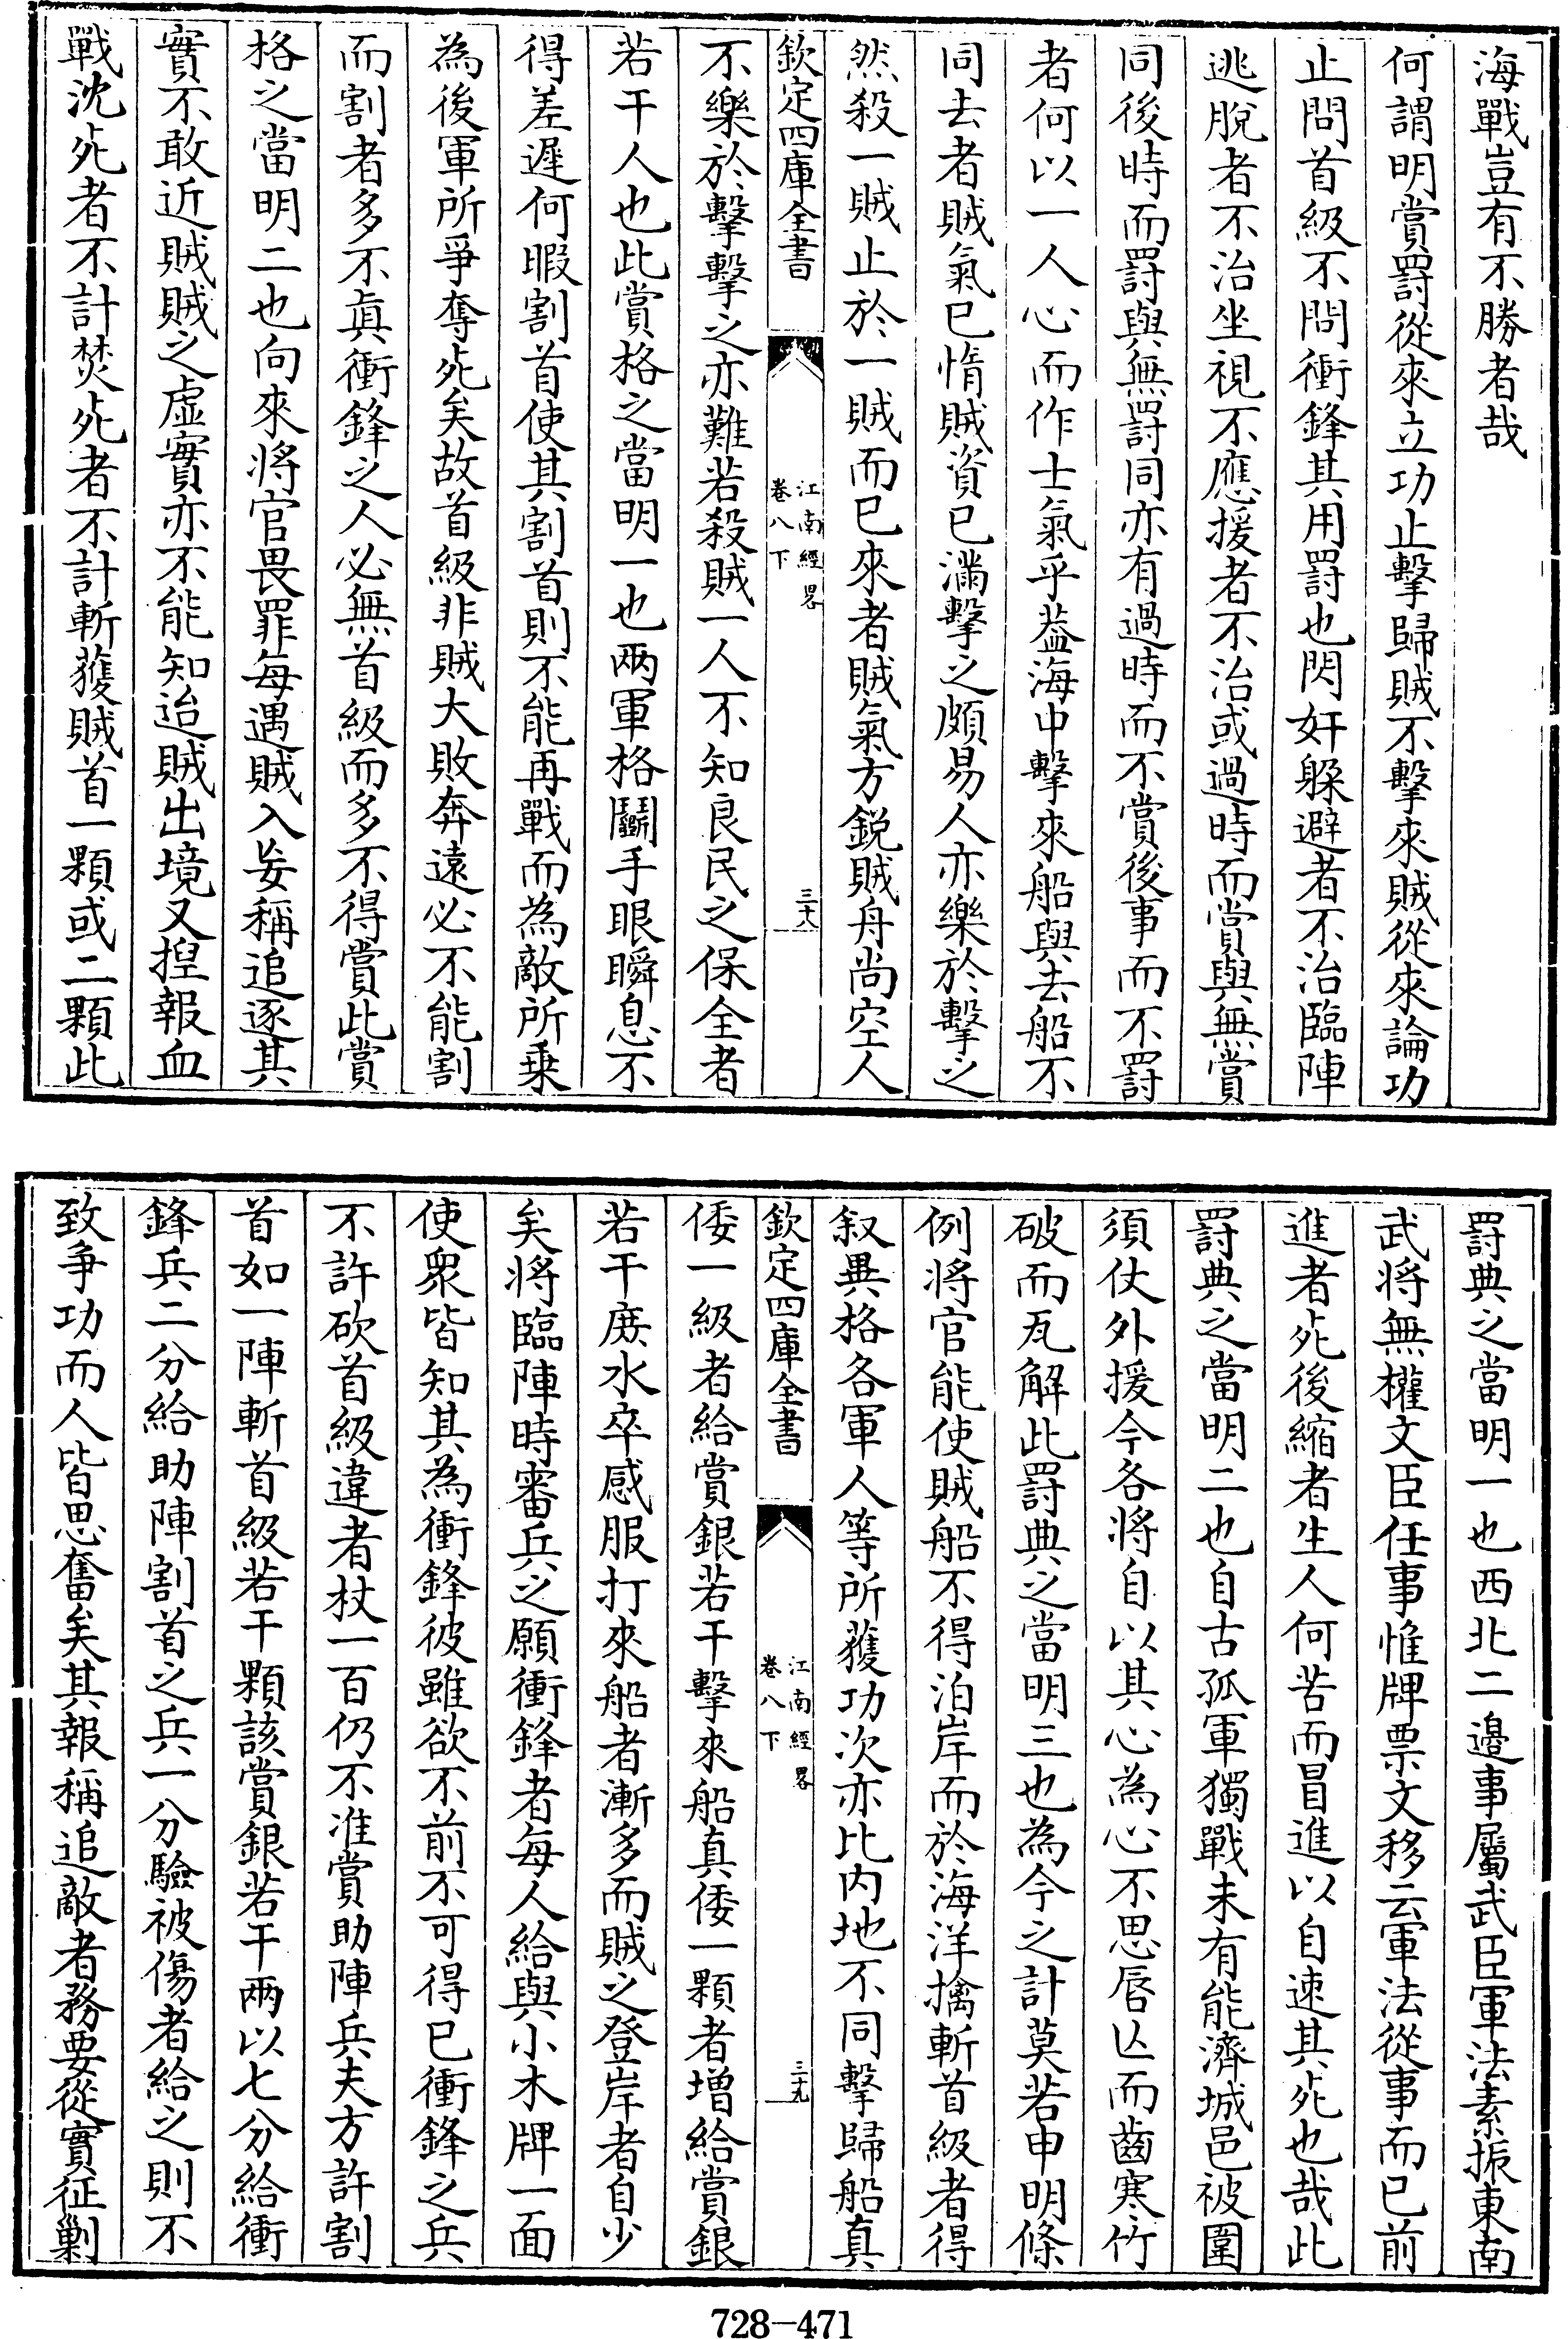 海戰豈有不勝者哉
何謂明賞罸從來立功止擊歸賊不擊來賊從來論功
止問首級不問衝鋒其用罰也閃奸躱避者不治臨陣
逃脫者不治坐視不應援者不治或過時而賞與無賞
同後時而罸與無罸同亦有過時而不賞後事而不罸
者何以一人心而作士氣乎葢海中擊來船與去船不
同去者賊氣已惰賊資已滿擊之頗易人亦樂於擊之
然殺一賊止於一賊而已來者賊氣方銳賊舟尚空人
欽定四庫全書
江南經畧
卷八下
三十八
不樂於擊擊之亦難若殺賊一人不知良民之保全者
若干人也此賞格之當明一也兩軍格鬬手眼瞬息不
得差遲何暇割首使其割首則不能再戰而為敵所乗
為後軍所爭奪死矣故首級非賊大敗奔遠必不能割
而割者多不眞衝鋒之人必無首級而多不得賞此賞
格之當明二也向來将官畏罪每遇賊入妄稱追逐其
實不敢近賊賊之虛實亦不能知迨賊出境又揑報血
戰沈死者不計焚死者不計斬獲賊首一顆或二顆此
罸典之當明一也西北二邉事屬武臣軍法素振東南
武将無權文臣任事惟牌票文移云軍法從事而已前
進者死後縮者生人何苦而冒進以自速其死也哉此
罸典之當明二也自古孤軍獨戰未有能濟城邑被圍
須仗外援今各将自以其心為心不思唇亾而齒寒竹
破而瓦解此罸典之當明三也為今之計莫若申明條
例将官能使賊船不得泊岸而於海洋擒斬首級者得
叙異格各軍人等所獲功次亦比内地不同擊歸船真
欽定四庫全書
江南經畧
卷八下
三十九
倭一級者給賞銀若干擊來船真倭一顆者增給賞銀
若干庻水卒感服打來船者漸多而賊之登岸者自少
矣将臨陣時審兵之願衝鋒者每人給與小木牌一面
使衆皆知其為衝鋒彼雖欲不前不可得已衝鋒之兵
不許砍首級違者杖一百仍不准賞助陣兵夫方許割
首如一陣斬首級若干顆該賞銀若干兩以七分給衝
鋒兵二分給助陣割首之兵一分驗被傷者給之則不
致争功而人皆思奮矣其報稱追敵者務要從實征剿
728-471